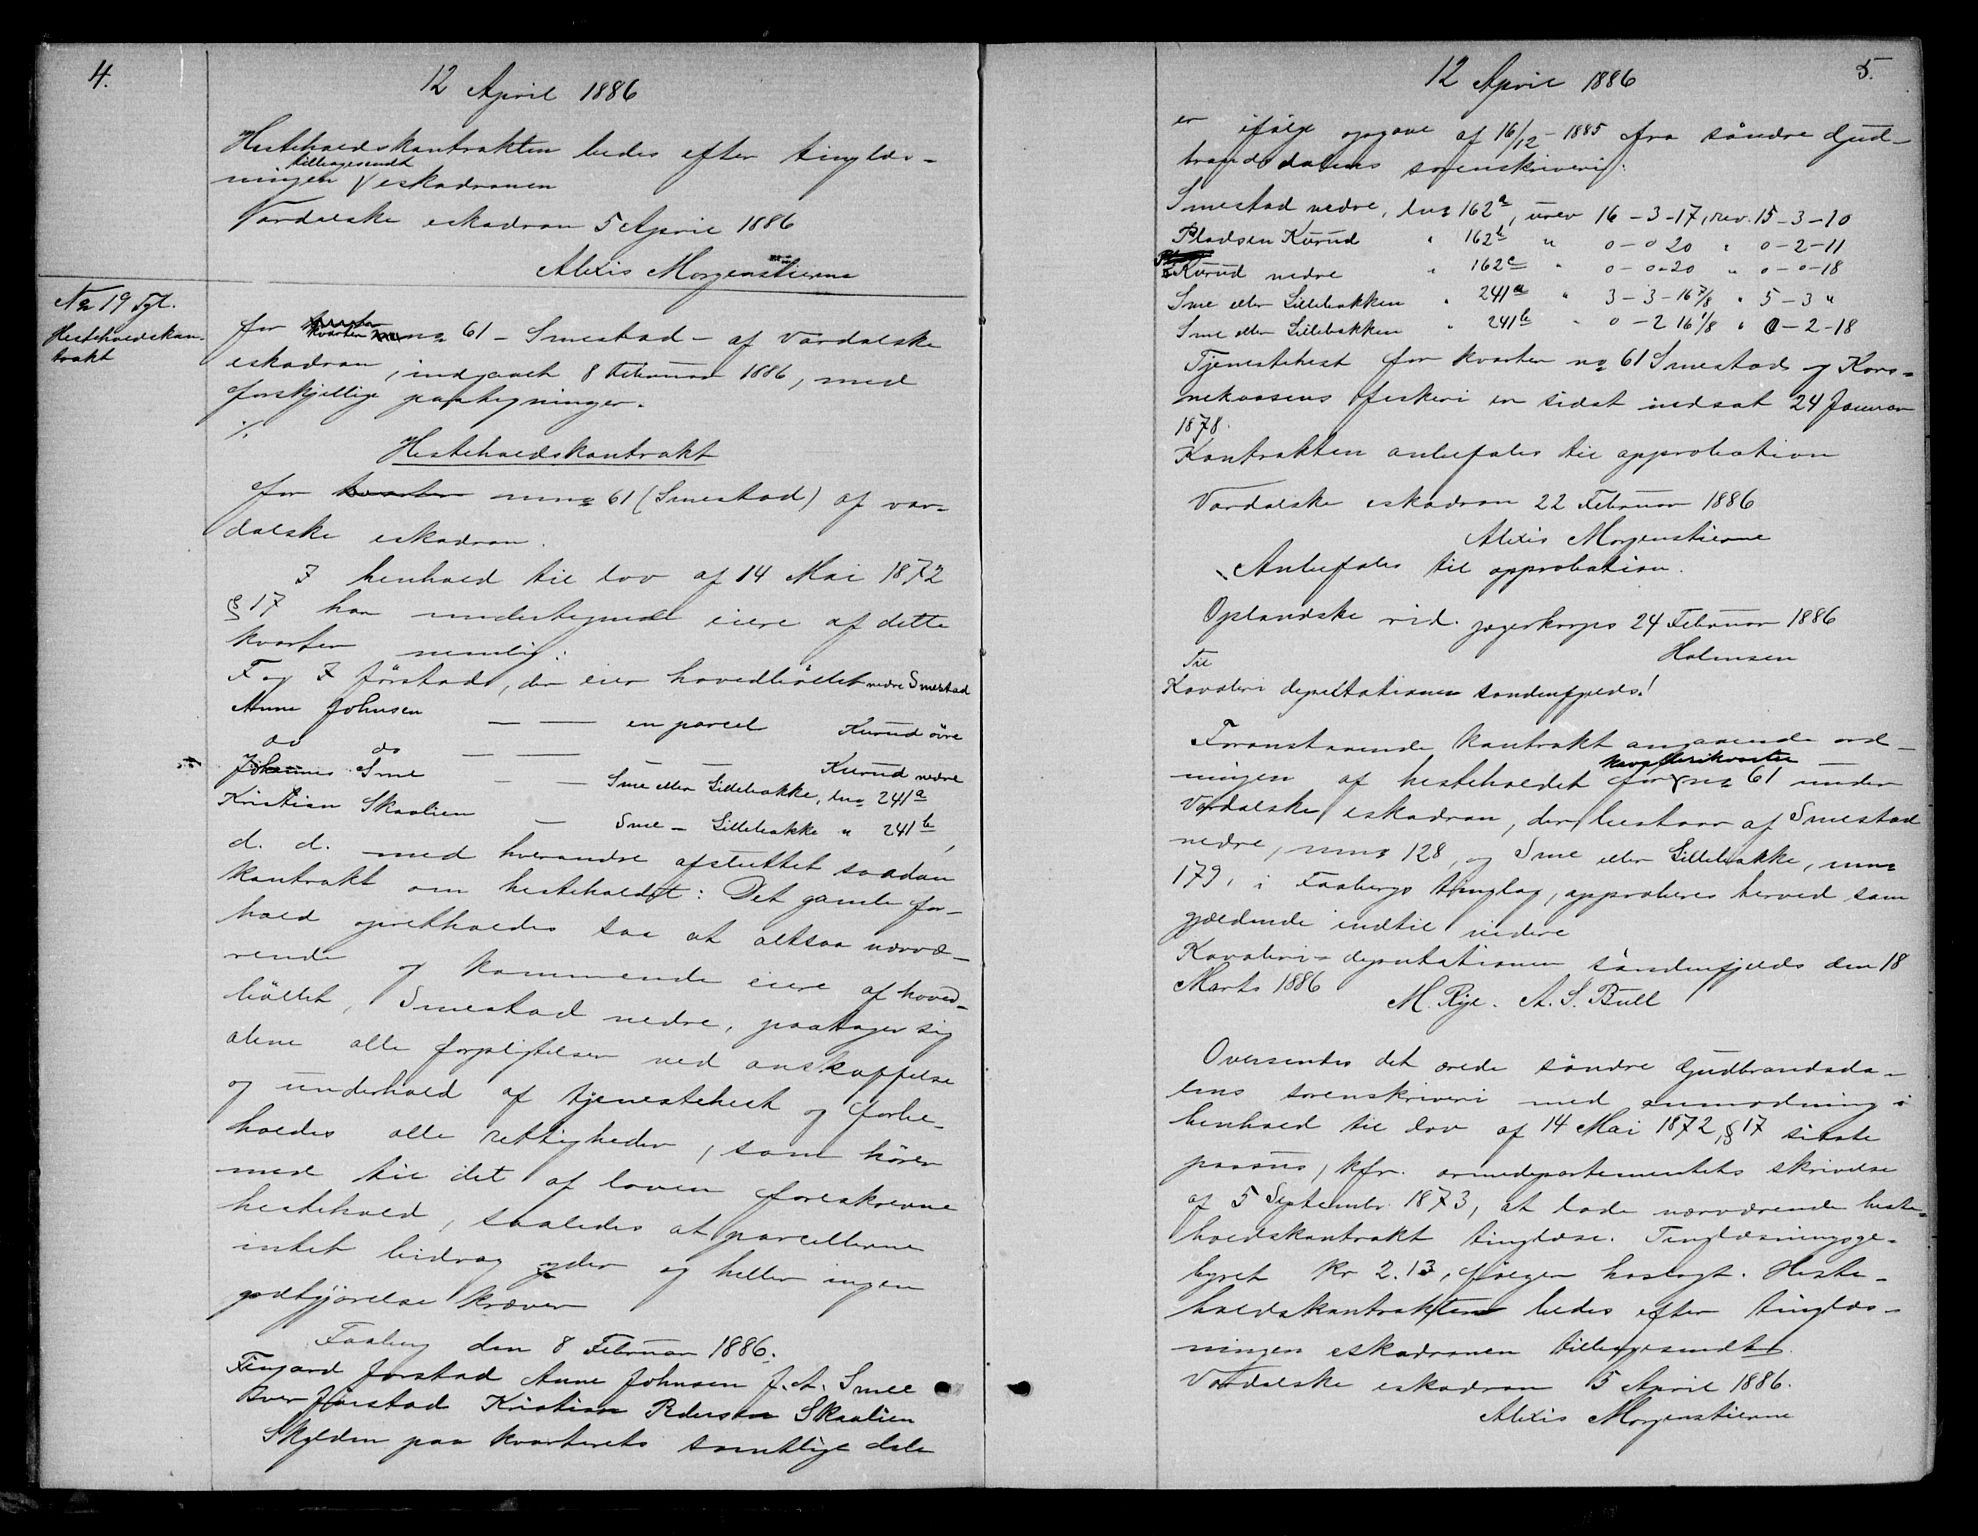 4.
12 April 1886
Hesteholdskontrakten bedes efter tinglæs-
ningen tilbagesendt eskadronen
Vardalske eskadron 5 April 1886
Alexis Morgenstierne
No 19 Tgl.
Hestehoedskon-
trakt
for kvarter no 61 - Smestad - af Vardalske
eskadron, indgaaet 8 Februar 1886, med
forskjellige paategninger.
·/.
Hestehoedskontrakt
for kvarter mno 61 (Smestad) af var-
dalske eskadron.
I henhold til lov af 14 Mai 1872
§ 17 har undertegnede eiere af dette
kvarter nemlig:
F og I Jörstad, der eier hovedbölet nedre Smestad
Anne Johnsen — — en parcel Kurud övre
do do — — — — Kurud nedre
Johannes Sme — — Sme eller Lillebakke, lno 241a
Kristian Skaalien — Sme - Lillebakke " 241b,
d. d. med hverandre afsluttet saadan
kontrakt om hesteholdet: Det gamle for-
hold opretholdes saa at altsaa nærvæ-
rende og kommende eiere af hoved-
bölet, Smestad nedre, paatager sig
alene alle forpligtelser ved anskaffelse
og underhold af tjenestehest og forbe-
holdes alle rettigheder, som hörer
med til det af loven foreskrevne
hestehold, saaledes at parcellerne
intet bidrag yder og heller ingen
godtgjörelse kræver
Faaberg den 8 Februar 1886.
Fingard Jorstad Anne Johnsen J. A. Smee
Iver Jörstad Kristian Pedersen Skaalien
Skylden paa kvarterets samtlige dele
12 April 1886
5.
er ifölge opgave af 16/12 - 1885 fra söndre Gud-
brandsdalens sorenskriveri:
Smestad nedre, lno 162a, urev 16-3-17, rev. 15-3-10
Pladsen Kurud " 162b " 0-0 20 " 0-2-11
Kurud nedre " 162c " 0-0-20 " 0-0-18
Sme eller Lillebakken " 241a " 3-3-16 7/8 " 5-3 "
Sme eller Lillebakken " 241b " 0-2 16 1/8 " 0-2-18
Tjenestehest for kvarter no 61 Smestad og Kors-
nekaasens fiskeri er sidst indsat 24 Januar
1878.
Kontrakten anbefales til approbation
Vardalske eskadron 22 Februar 1886
Alexis Morgenstierne
Anbefales til approbation.
Oplandske rid. jægerkorps 24 Februar 1886
Holmsen
Til
Kavaleri deputationen söndenfjelds!
Foranstaaende kontrakt angaaende ord-
ningen af hesteholdet for kavallerikvarter no 61 under
Vardalske eskadron, der bestaar af Smestad
nedre, mno 128, og Sme eller Lillebakke, mno
179, i Faabergs tinglag, approberes herved som
gjældende indtil videre
Kavaleri-deputationen söndenfjelds den 18
Marts 1886
M. Rye. A. S. Bull
Oversendes det ærede söndre Gudbrandsda-
lens sorenskriveri med anmodning i
henhold til lov af 14 Mai 1872, § 17 sidste
passus, kfr. armedepartementets skrivelse
af 5 Septembr. 1873, at lade nærværende heste-
holdskontrakt tinglæse. Tinglæsningsge-
byret Kr 2.13, fölger hoslagt. Heste-
holdskontrakten bedes efter tinglæs-
ningen eskadronen tilbagesendt.
Vardalske eskadron 5 April 1886.
Alexis Morgenstierne